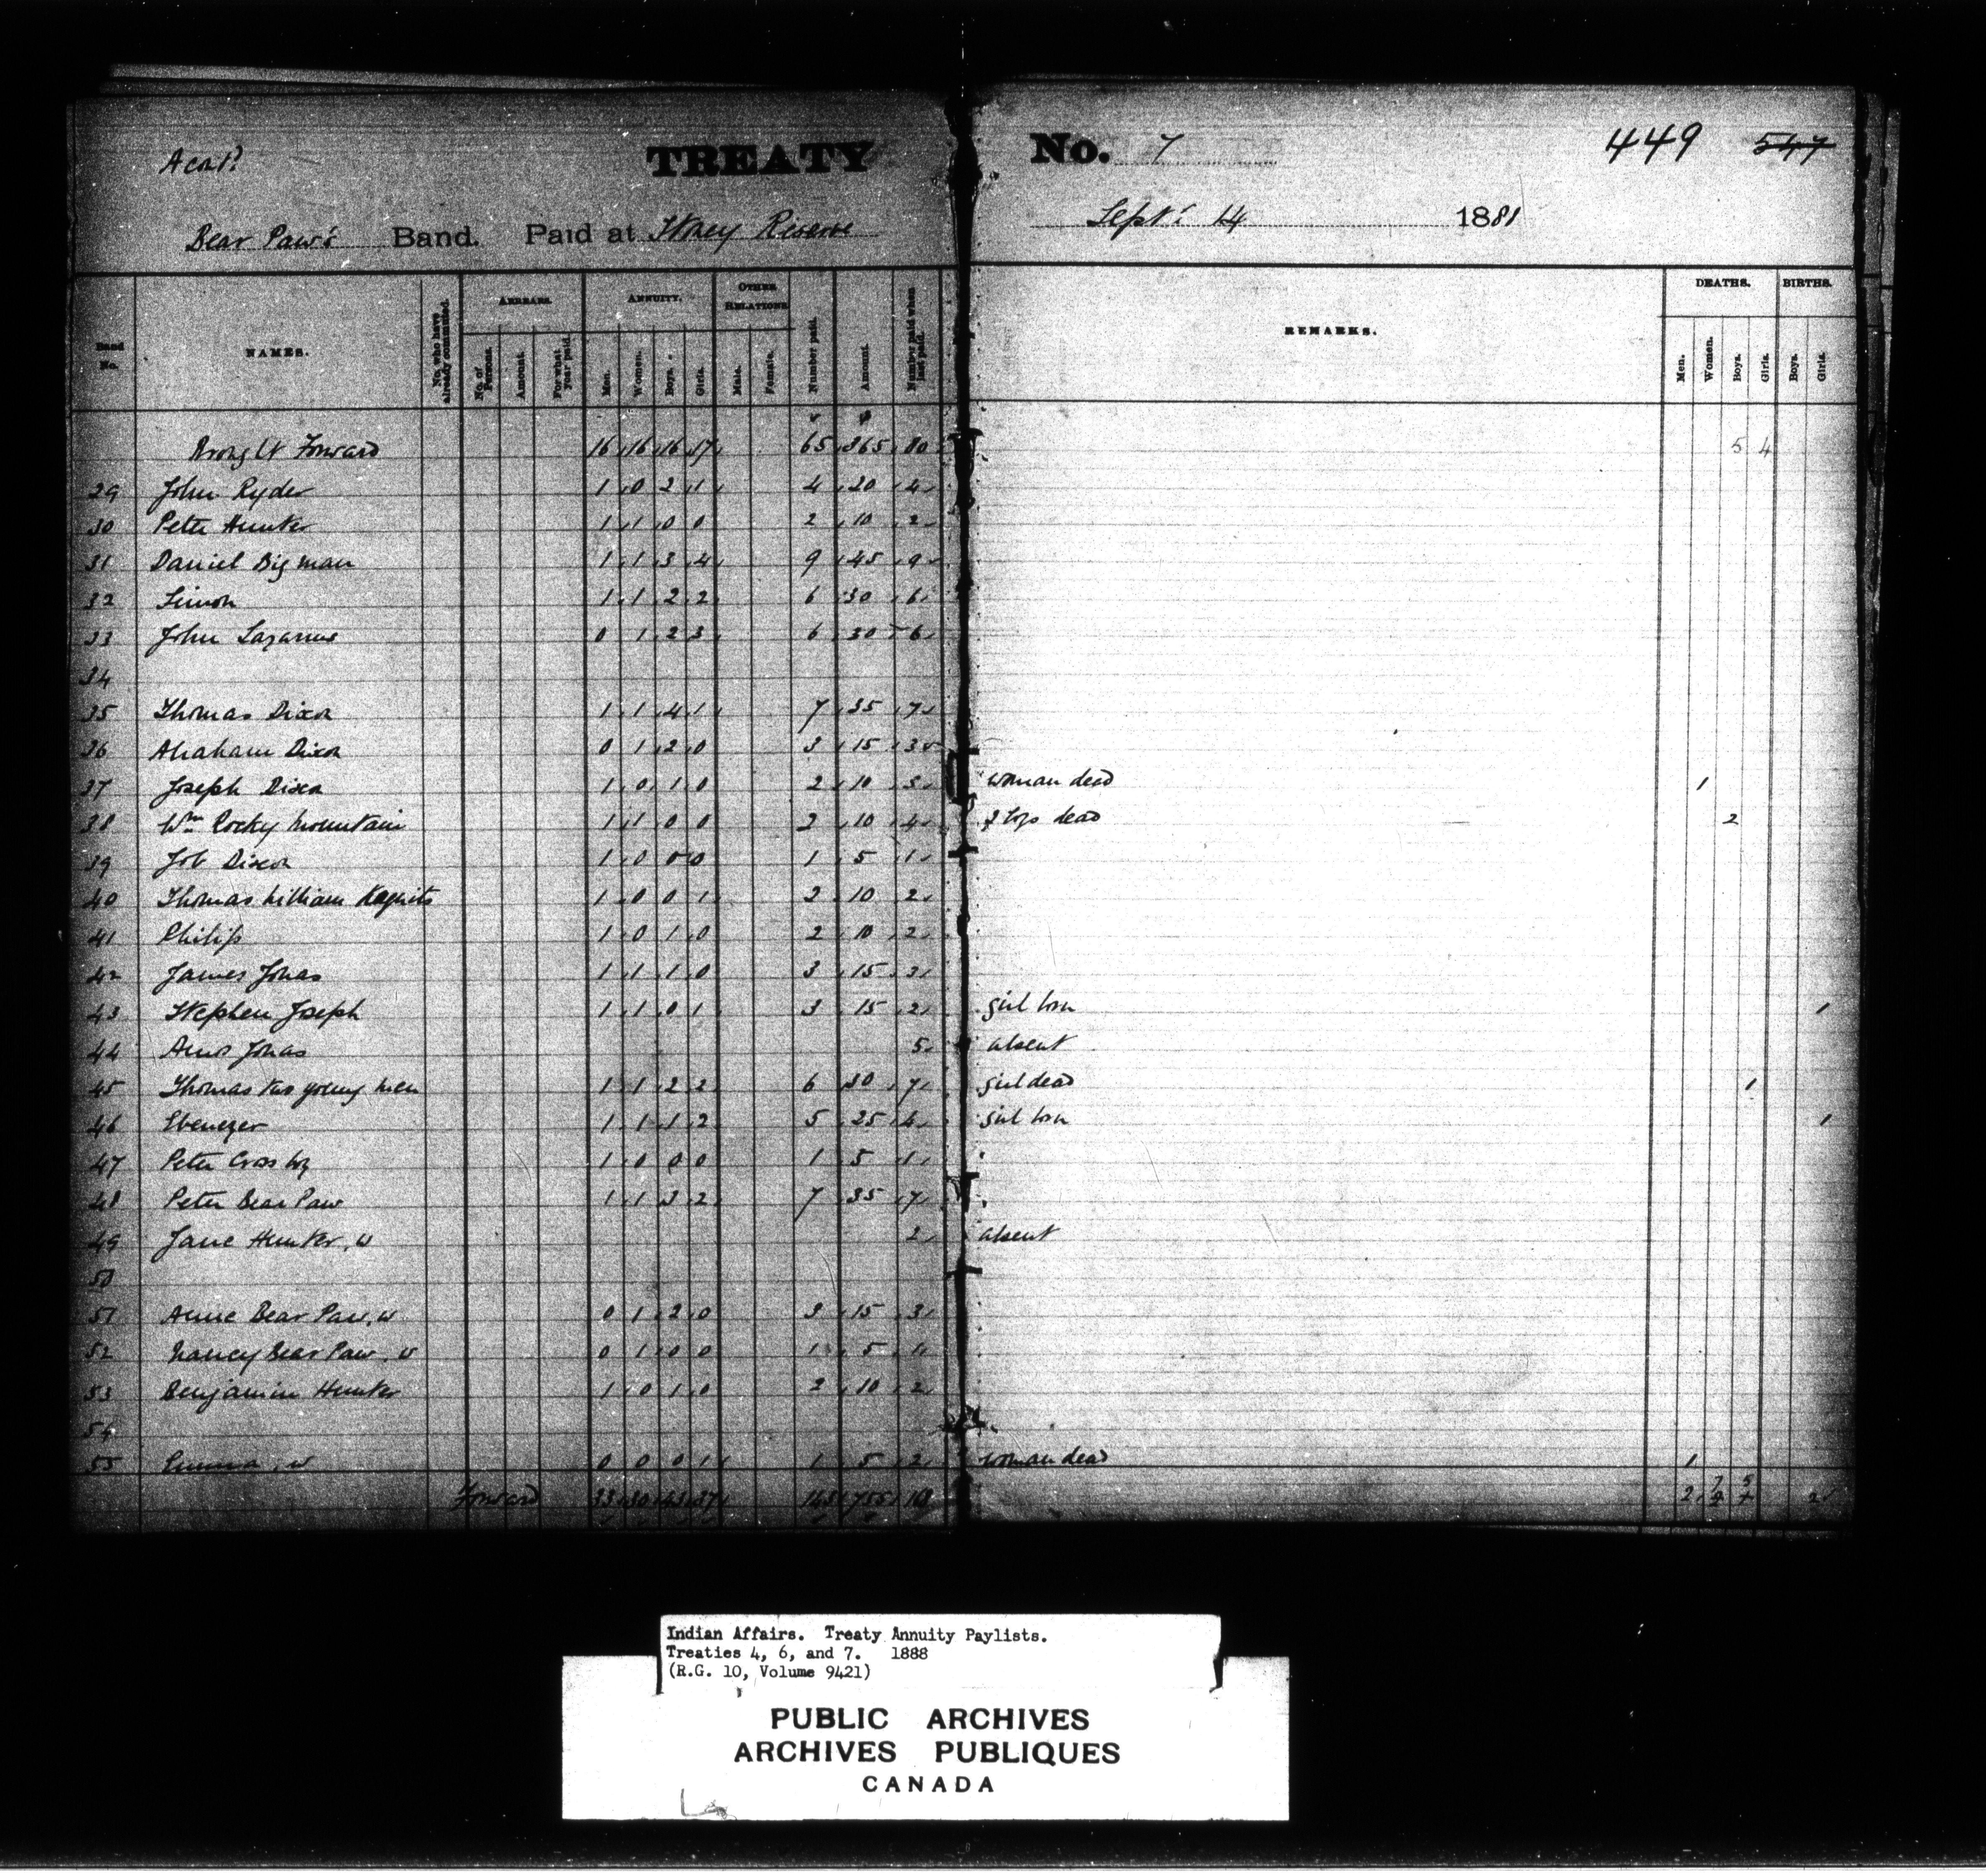 TREATY No. 7 449 547
Bear Paw's Band. Paid at Stoney Reserve Sept. 14 1888
Band No. NAMES. No. who have already commuted. ARREARS. No. of Persons. Amount. For what year paid. ANNUITY. Men. Women. Boys. Girls. OTHER RELATIONS Male. Female. Number paid. Amount. Number paid when last paid. REMARKS. DEATHS. Men. Women. Boys. Girls. BIRTHS. Boys. Girls.
Brought Forward 16 16 16 17 65 365 80 5 4
29 John Ryder 1 0 2 1 4 20 4
30 Peter Hunter 1 1 0 0 2 10 2
31 Daniel Big man 1 1 3 4 9 45 9
32 Simon 1 1 2 2 6 30 6
33 John Lazarus 0 1 2 3 6 30 6
34
35 Thomas Dixon 1 1 4 1 7 35 7
36 Abraham Dixon 0 1 2 0 3 15 3
37 Joseph Dixon 1 0 1 0 2 10 3 woman dead 1
38 Wm Rocky Mountain 1 1 0 0 2 10 4 2 boys dead 2
39 Job Dixon 1 0 0 0 1 5 1
40 Thomas William 1 0 0 1 2 10 2
41 Philip 1 0 1 0 2 10 2
42 James Jonas 1 1 1 0 3 15 3
43 Stephen Joseph 1 1 0 1 3 15 2 girl born 1
44 Amos Jonas 5 absent
45 Thomas two young men 1 1 2 2 6 30 7 girl dead 1
46 Ebenezer 1 1 1 2 5 25 4 girl born 1
47 Peter Crosby 1 0 0 0 1 5 1
48 Peter Bear Paw 1 1 3 2 7 35 7
49 Jane Hunter, W 2 absent
50
51 Annie Bear Paw, W 0 1 2 0 3 15 3
52 Nancy Bear Paw, W 0 1 0 0 1 5 1
53 Benjamin Hunter 1 0 1 0 2 10 2
54
55 Emma, W 0 0 0 1 1 5 2 woman dead 1
Forward 33 30 43 37 143 755 163 2 7 5 2
Indian Affairs. Treaty Annuity Paylists.
Treaties 4, 6, and 7. 1888
(R.G. 10, Volume 9421)
PUBLIC ARCHIVES
ARCHIVES PUBLIQUES
CANADA